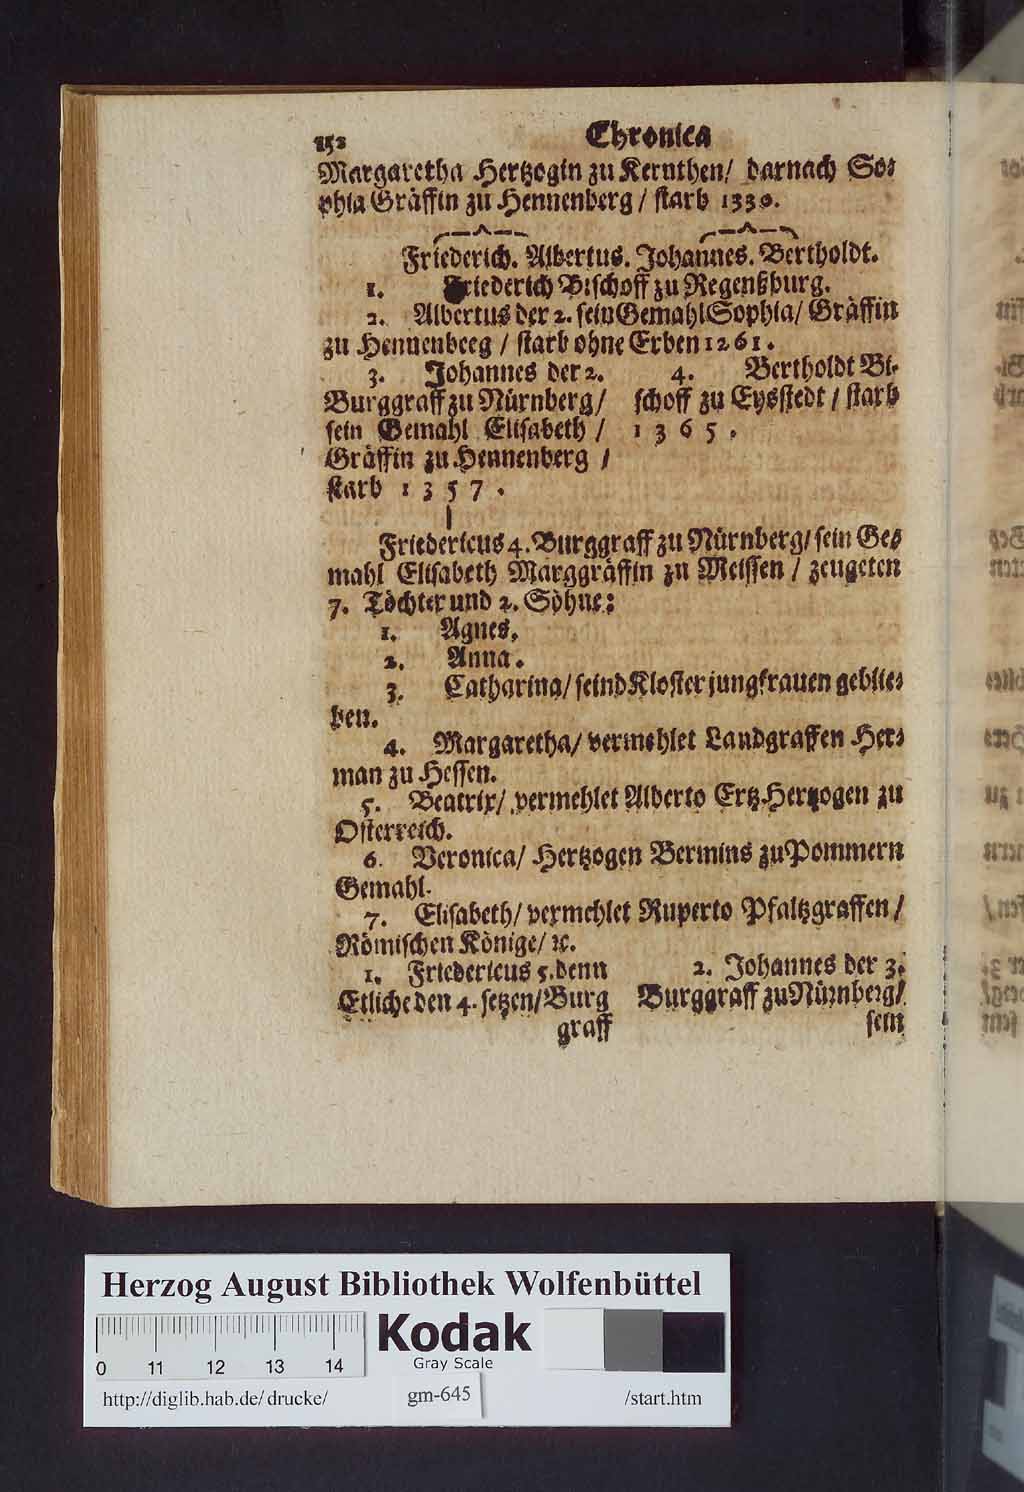 152 Chronica
Margaretha Hertzogin zu Kernthen/ darnach So-
phia Gräffin zu Hennenberg / starb 1330.
Friederich. Albertus. Johannes. Bertholdt.
1. Friederich Bischoff zu Regenßburg.
2. Albertus der 2. sein Gemahl Sophia/ Gräffin
zu Hennenbeeg / starb ohne Erben 1261.
3. Johannes der 2.
Burggraff zu Nürnberg/
sein Gemahl Elisabeth /
Gräffin zu Hennenberg /
starb 1357.
4. Bertholdt Bi-
schoff zu Eysstedt / starb
1365.
Friedericus 4. Burggraff zu Nürnberg/ sein Ge-
mahl Elisabeth Marggräffin zu Meissen / zeugeten
7. Töchter und 2. Söhne:
1. Agnes.
2. Anna.
3. Catharina/ seind Kloster jungfrauen geblie-
ben.
4. Margaretha/ vermehlet Landgraffen Her-
man zu Hessen.
5. Beatrix/ vermehlet Alberto Ertz-Hertzogen zu
Osterreich.
6. Veronica/ Hertzogen Bermins zu Pommern
Gemahl.
7. Elisabeth/ vermehlet Ruperto Pfaltzgraffen /
Römischen Könige/ ꝛc.
1. Friedericus 5. denn
Etliche den 4. setzen/ Burg
graff
2. Johannes der 3.
Burggraff zu Nürnberg/
sein
Herzog August Bibliothek Wolfenbüttel
0 11 12 13 14
Kodak
Gray Scale
http://diglib.hab.de/drucke/ gm-645 /start.htm